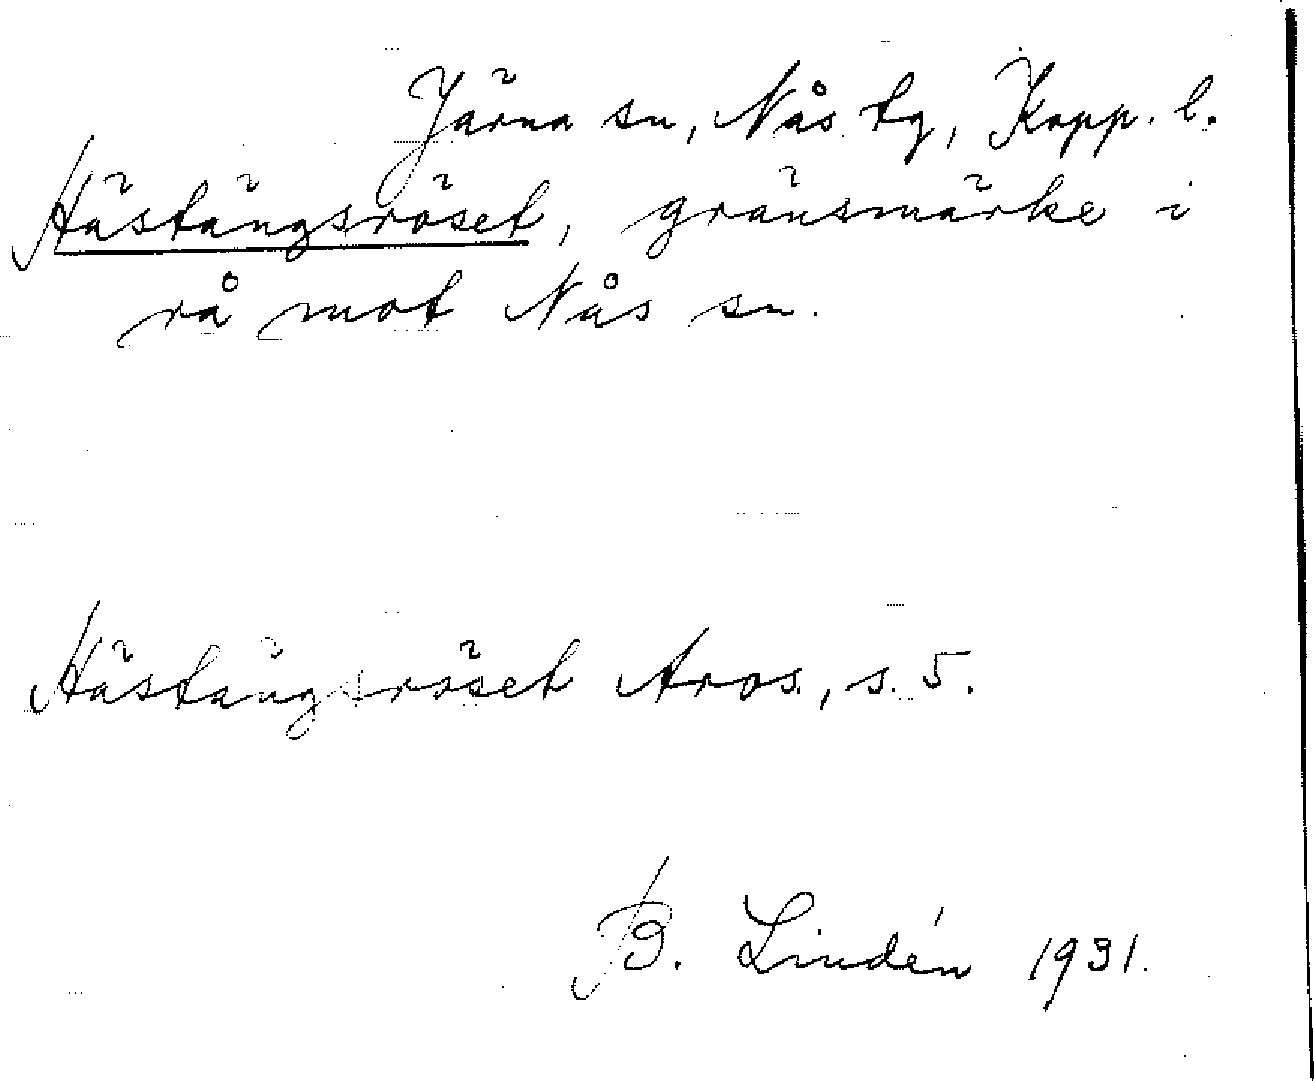 Järna sn, Nås tg, Kopp. l.
Hästängsröset, gränsmärke i
rå mot Nås sn.
Hästängsröset Aros., s. 5.
B. Lindén 1931.